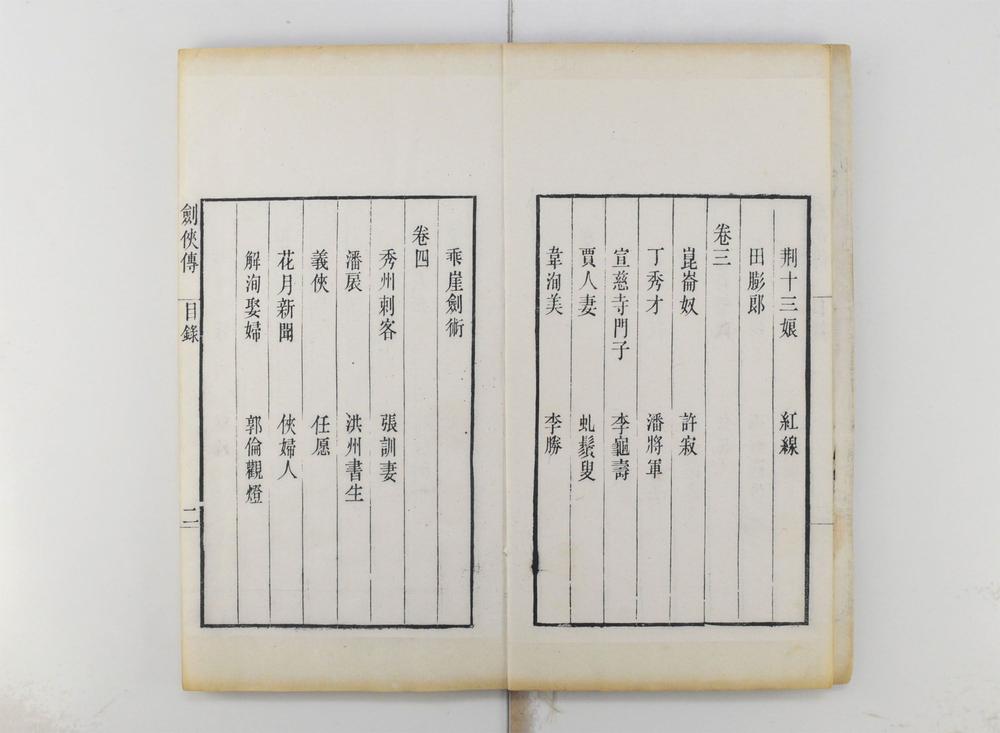 荆十三娘 紅線
田膨郎
卷三
崑崙奴 許寂
丁秀才 潘將軍
宣慈寺門子 李龜壽
賈人妻 虬鬚叟
韋洵美 李勝
乖崖劍術
卷四
秀州刺客 張訓妻
潘扆 洪州書生
義俠 任愿
花月新聞 俠婦人
解洵娶婦 郭倫觀燈
劍俠傳 目錄 二